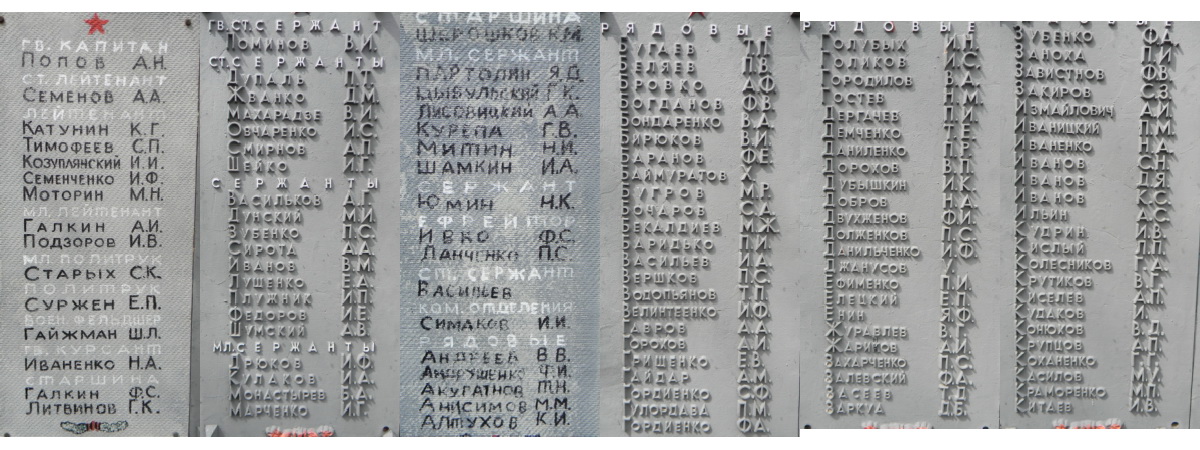 ГВ. КАПИТАН
ПОПОВ А.Н.
СТ. ЛЕЙТЕНАНТ
СЕМЕНОВ А.А.
ЛЕЙТЕНАНТ
КАТУНИН К.Г.
ТИМОФЕЕВ С.П.
КОЗУПЛЯНСКИЙ И.И.
СЕМЕНЧЕНКО И.Ф.
МОТОРИН М.Н.
МЛ. ЛЕЙТЕНАНТ
ГАЛКИН А.И.
ПОДЗОРОВ И.В.
МЛ. ПОЛИТРУК
СТАРЫХ С.К.
ПОЛИТРУК
СУРЖЕН Е.П.
ВОЕН. ФЕЛЬДШЕР
ГАЙЖМАН Ш.Л.
ГВ. КУРСАНТ
ИВАНЕНКО Н.А.
СТАРШИНА
ГАЛКИН Ф.С.
ЛИТВИНОВ Г.К.
ГВ. СТ. СЕРЖАНТ
ЛОМИНОВ В.И.
СТ. СЕРЖАНТЫ
ДУПАЛЬ Т.
ЖВАНКО Д.М.
МАХАРАДЗЕ В.
ОВЧАРЕНКО И.С.
СМИРНОВ А.П.
ШЕЙКО И.Г.
СЕРЖАНТЫ
ВАСИЛЬКОВ А.Г.
ДУНСКИЙ М.И.
ЗУБЕНКО П.С.
СИРОТА А.А.
ИВАНОВ В.М.
ЛУШЕНКО Е.А.
ПЛУЖНИК И.П.
ФЕДОРОВ И.Е.
ШУМСКИЙ А.В.
МЛ. СЕРЖАНТЫ
КРЮКОВ И.Ф.
КУЛАКОВ И.А.
МОНАСТЫРЕВ Б.А.
МАРЧЕНКО И.Г.
СТАРШИНА
ШЕРОШКОВ К.М.
МЛ. СЕРЖАНТ
ПАРТОЛИН Я.Д.
ЦЫБУЛЬСКИЙ Г.К.
ЛИСОВИЦКИЙ А.А.
КУРЕПА Г.В.
МИТИН Н.И.
ШАМКИН И.А.
СЕРЖАНТ
ЮМИН Н.К.
ЕФРЕЙТОР
ИВКО Ф.С.
ПАНЧЕНКО П.С.
СТ. СЕРЖАНТ
ВАСИЛЬЕВ
КОМ. ОТДЕЛЕНИЯ
СИМАКОВ И.И.
РЯДОВЫЕ
АНДРЕЕВ В.В.
АНДРУШЕНКО Ф.И.
АКУГАТНОВ Т.Н.
АНИСИМОВ М.М.
АЛТУХОВ К.И.
РЯДОВЫЕ
БУГАЕВ П.
БЕЛЯЕВ П.В.
БРОВКО А.Ф.
БОГДАНОВ Ф.В.
БОНДАРЕНКО В.А.
БИРЮКОВ В.И.
БАРАНОВ Ф.Е.
БАЙМУРАТОВ Х.
БУГРОВ М.Р.
БОЧАРОВ С.А.
БЕКАЛДИЕВ М.Ж.
БАРИДЬКО П.И.
ВАСИЛЬЕВ И.А.
ВЕРШКОВ П.С.
ВОДОПЬЯНОВ Т.П.
ВЕЛИНТЕЕНКО И.Ф.
ГАВРОВ А.А.
ГОРОХОВ А.И.
ГРИЩЕНКО Е.В.
ГАЙДАР А.М.
ГОРДИЕНКО С.Ф.
ГУЛОРДАВА П.М.
ГОРДИЕНКО Г.А.
РЯДОВЫЕ
ГОЛУБЫХ И.П.
ГОЛИКОВ И.С.
ГОРОДИЛОВ В.А.
ГОСТЕВ Д.М.
ДЕРГАЧЕВ П.И.
ДЕМЧЕНКО Т.Е.
ДАНИЛЕНКО П.Р.
ДОРОХОВ В.П.
ДУБЫШКИН И.К.
ДОБРОВ Н.А.
ДВУХЖЕНОВ Ф.И.
ДОЛЖЕНКОВ П.С.
ДАНИЛЬЧЕНКО И.Ф.
ДЖАНУСОВ У.
ЕФИМЕНКО П.И.
ЕЛЕЦКИЙ Е.П.
ЕНИН Я.Ф.
ЖУРАВЛЕВ В.Г.
ЖАРИКОВ А.И.
ЗАХАРЧЕНКО П.С.
ЗАЛЕВСКИЙ Ф.А.
ЗАСЕЕВ Д.
ЗАРКУА Д.Б.
ЗУБЕНКО Ф.А.
ЗАНОХА П.И.
ЗАВИСТНОВ Ф.В.
ЗАКИРОВ С.З.
ИЗМАЙЛОВИЧ А.И.
ИВАНИЦКИЙ П.М.
ИВАНЕНКО Н.А.
ИВАНОВ С.Н.
ИВАНОВ Д.Я.
ИВАНОВ К.С.
ИЛЬИН А.Г.
КУДРИН И.В.
КИСЛЫЙ Л.П.
КОЛЕСНИКОВ Г.А.
КРУТИКОВ Г.
КИСЕЛЕВ А.П.
КУДАКОВ И.
КОНЮХОВ В.Д.
КРУПЦОВ А.П.
КОХАНЕНКО Г.
КАСИЛОВ М.У.
КРАМОРЕНКО М.П.
КИТАЕВ И.В.